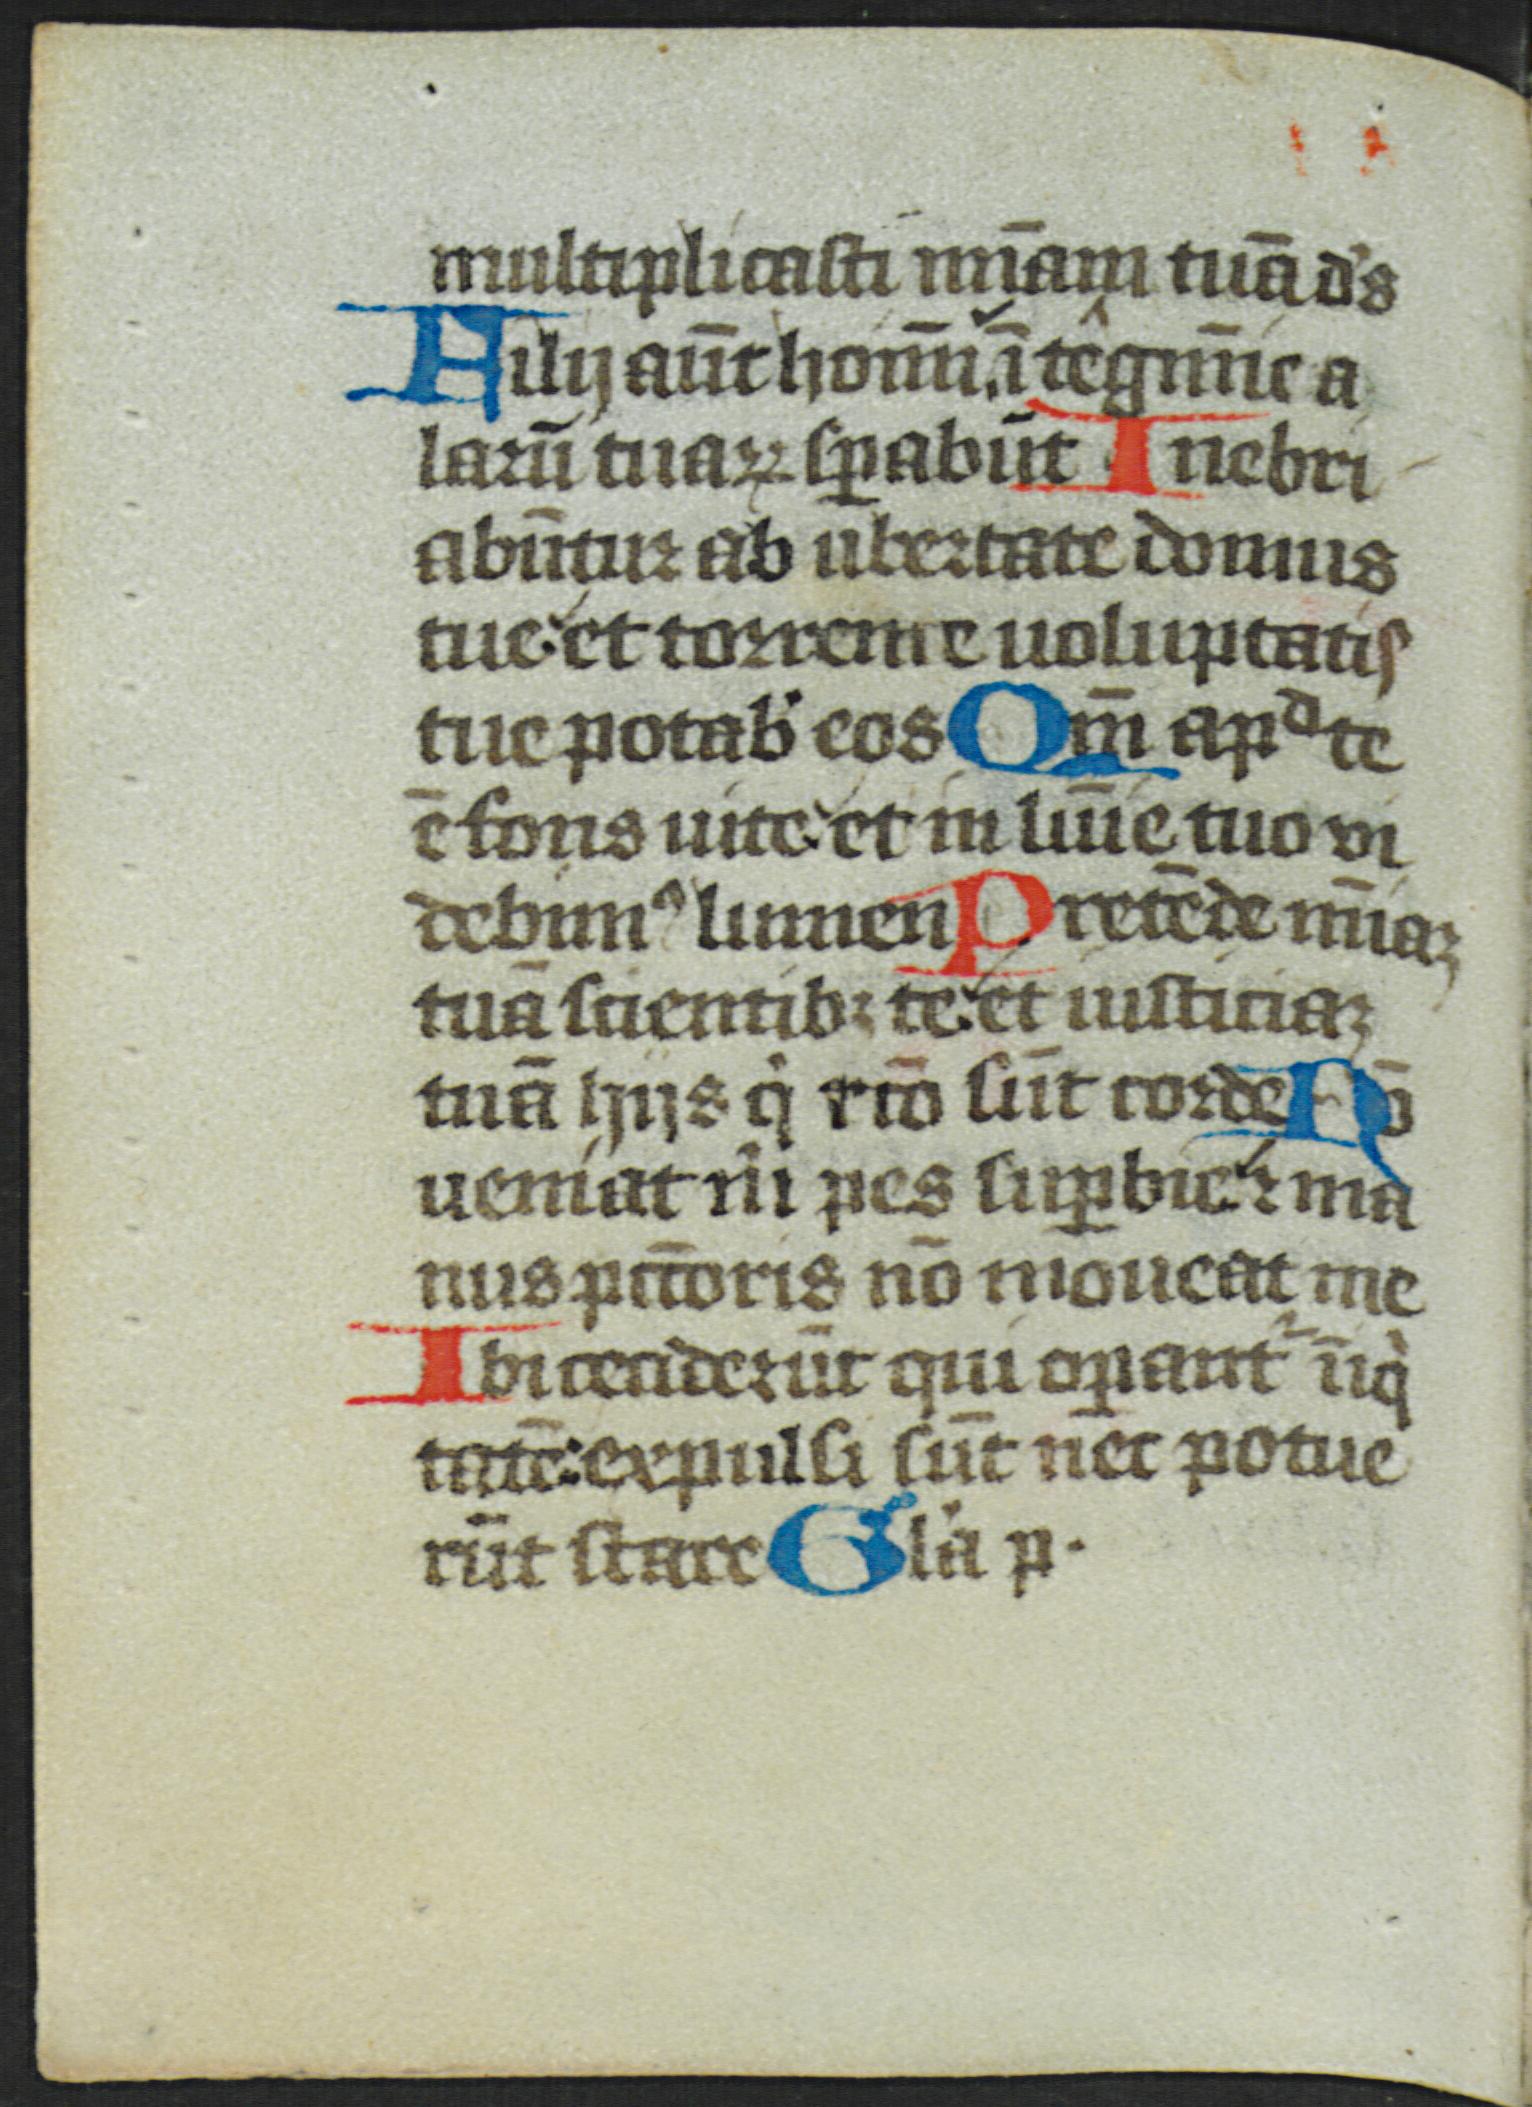 multiplicasti mīam tuā d's
Filij aūt homī, ī tēgmīe a
larū tuaꝝ sꝑabūt Inebri
abūtur ab ubertate domus
tue: et torrente uoluptatis
tue potab' eos Qm̄ apᵈ te
ē fons uite: et in lūīe tuo vi
debimꝰ lumen Pretēde mīaꝫ
tuā scientibꝫ te: et iusticiaꝫ
tuā hijs qͥ rcō sūt corde Nō
ueniat m̄i pes suꝑbie: ⁊ ma
nus pctōris nō moueat me
Ibi ceciderūt qui oꝑant' īiqͥ
tatē: expulsi sūt nec potue
rūt stare Gl'a p.